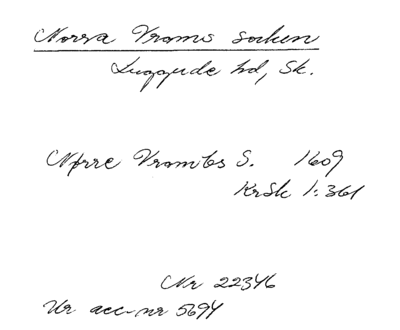 Norra Vrams socken
Luggude hd, Sk.
Nørre Vrambs S. 1609
KrSk 1:361
Nr 22346
Ur acc-nr 5694